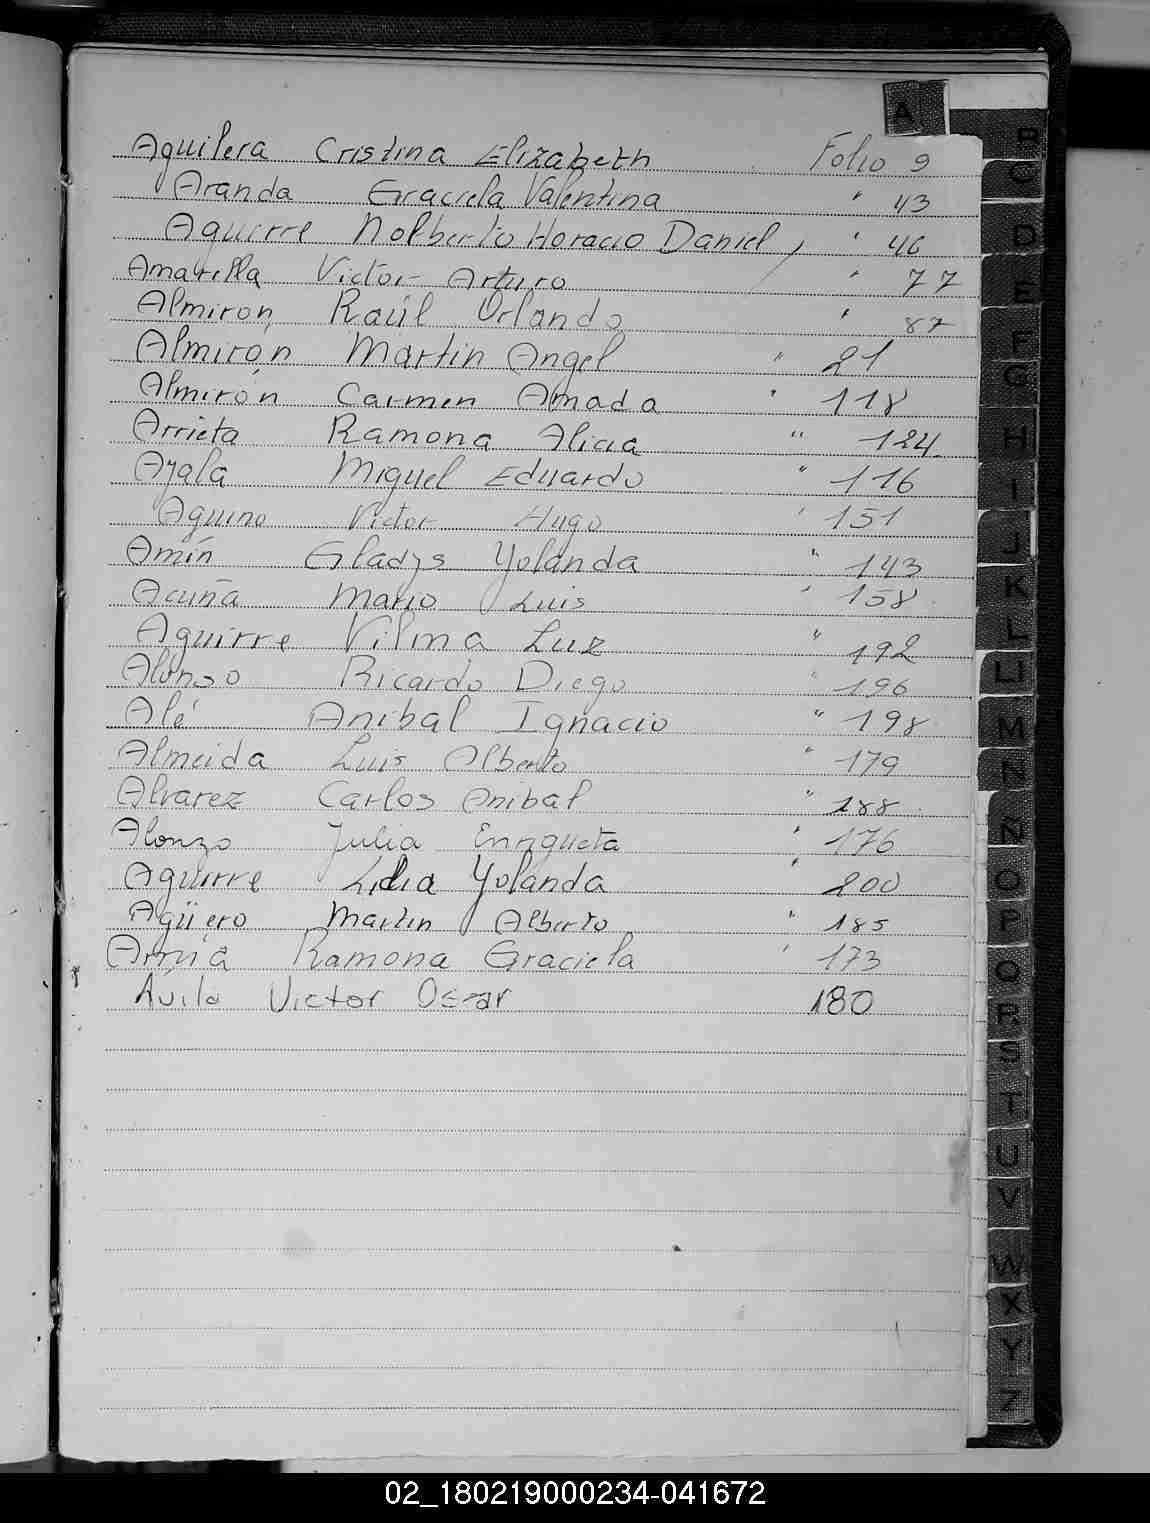 A
Aguilera Cristina Elizabeth Folio 9
Aranda Graciela Valentina " 43
Aguirre Nolberto Horacio Daniel, " 46
Amarilla Victor Arturo " 77
Almiron Raúl Orlando " 87
Almirón Martin Angel " 21
Almirón Carmen Amada " 118
Arrieta Ramona Alicia " 124
Ayala Miguel Eduardo " 116
Aquino Victor Hugo " 151
Amín Gladys Yolanda " 143
Acuña Mario Luis " 158
Aguirre Vilma Luz " 192
Alonso Ricardo Diego " 196
Alé Anibal Ignacio " 198
Almeida Luis Alberto " 179
Alvarez Carlos Anibal " 188
Alonzo Julia Enriqueta " 176
Aguirre Lidia Yolanda " 200
Agüero Martin Alberto " 185
Ramona Graciela " 173
Avila Victor Oscar 180
B
C
D
E
F
G
H
I
J
K
L
LI
M
N
Ñ
O
P
Q
R
S
T
U
V
W
X
Y
Z
02_180219000234-041672